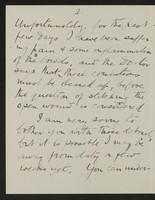 2
Unfortunately, for the past
few days I have been suffer-
ing pain & some inflammation
of the bowels, and the Doctor
says that these conditions
must be cleared up, before
the question of sttching the
open wound is considered.
I am very sorry to
bother you with these details
but it is possible I may be
away from duty a few
weeks yet. You can under-